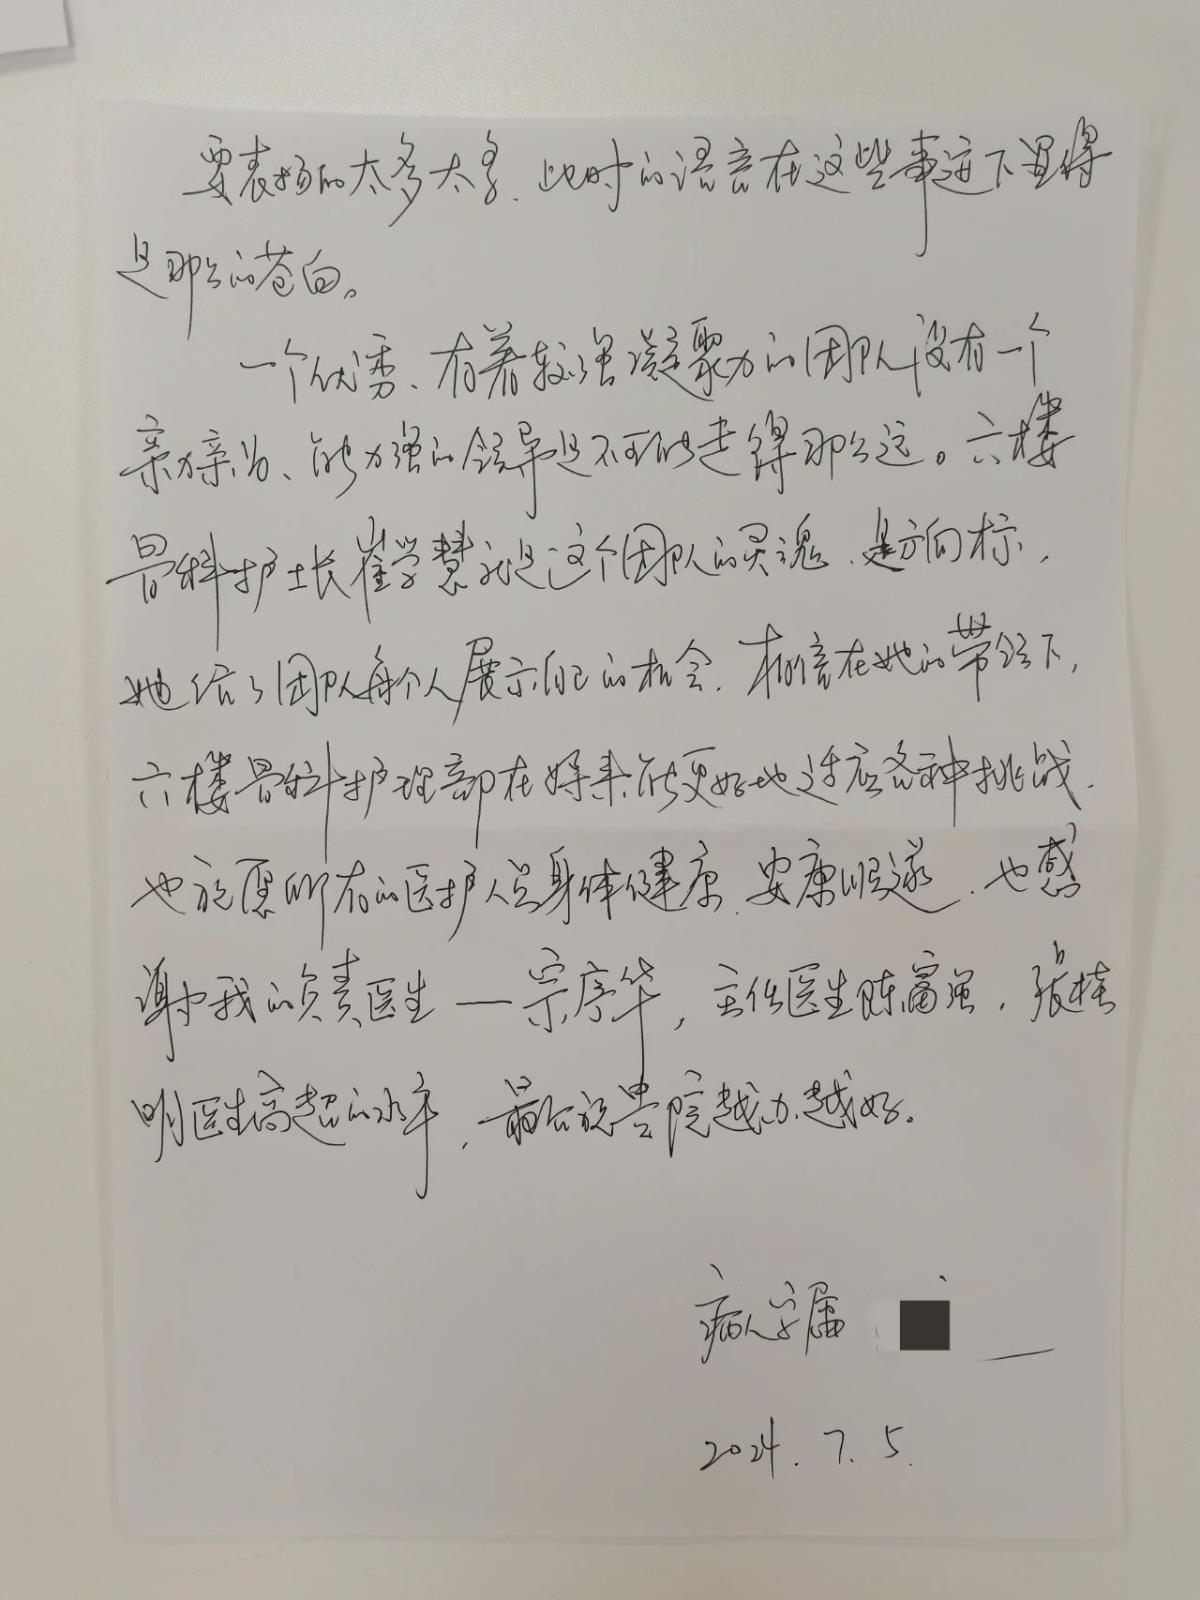 要表扬的太多太多，此时的语言在这些事迹下显得
是那么的苍白。
一个优秀、有着较强凝聚力的团队没有一个
亲力亲为、能力强的领导是不可能走得那么远。六楼
骨科护士长崔学慧就是这个团队的灵魂、是方向标，
她给了团队每个人展示自己的机会，相信在她的带领下，
六楼骨科护理部在将来能更好地适应各种挑战，
也祝愿所有的医护人员身体健康、安康顺遂，也感
谢我的负责医生——宗序华，主任医生陈富强，张桂
明医生高超的水平，最后祝贵院越办越好。
病人家属
2024.7.5.